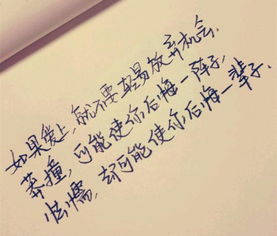 如果爱上,就不要轻易放弃机会.
莽撞,可能使你后悔一阵子,
怯懦,却可能使你后悔一辈子.